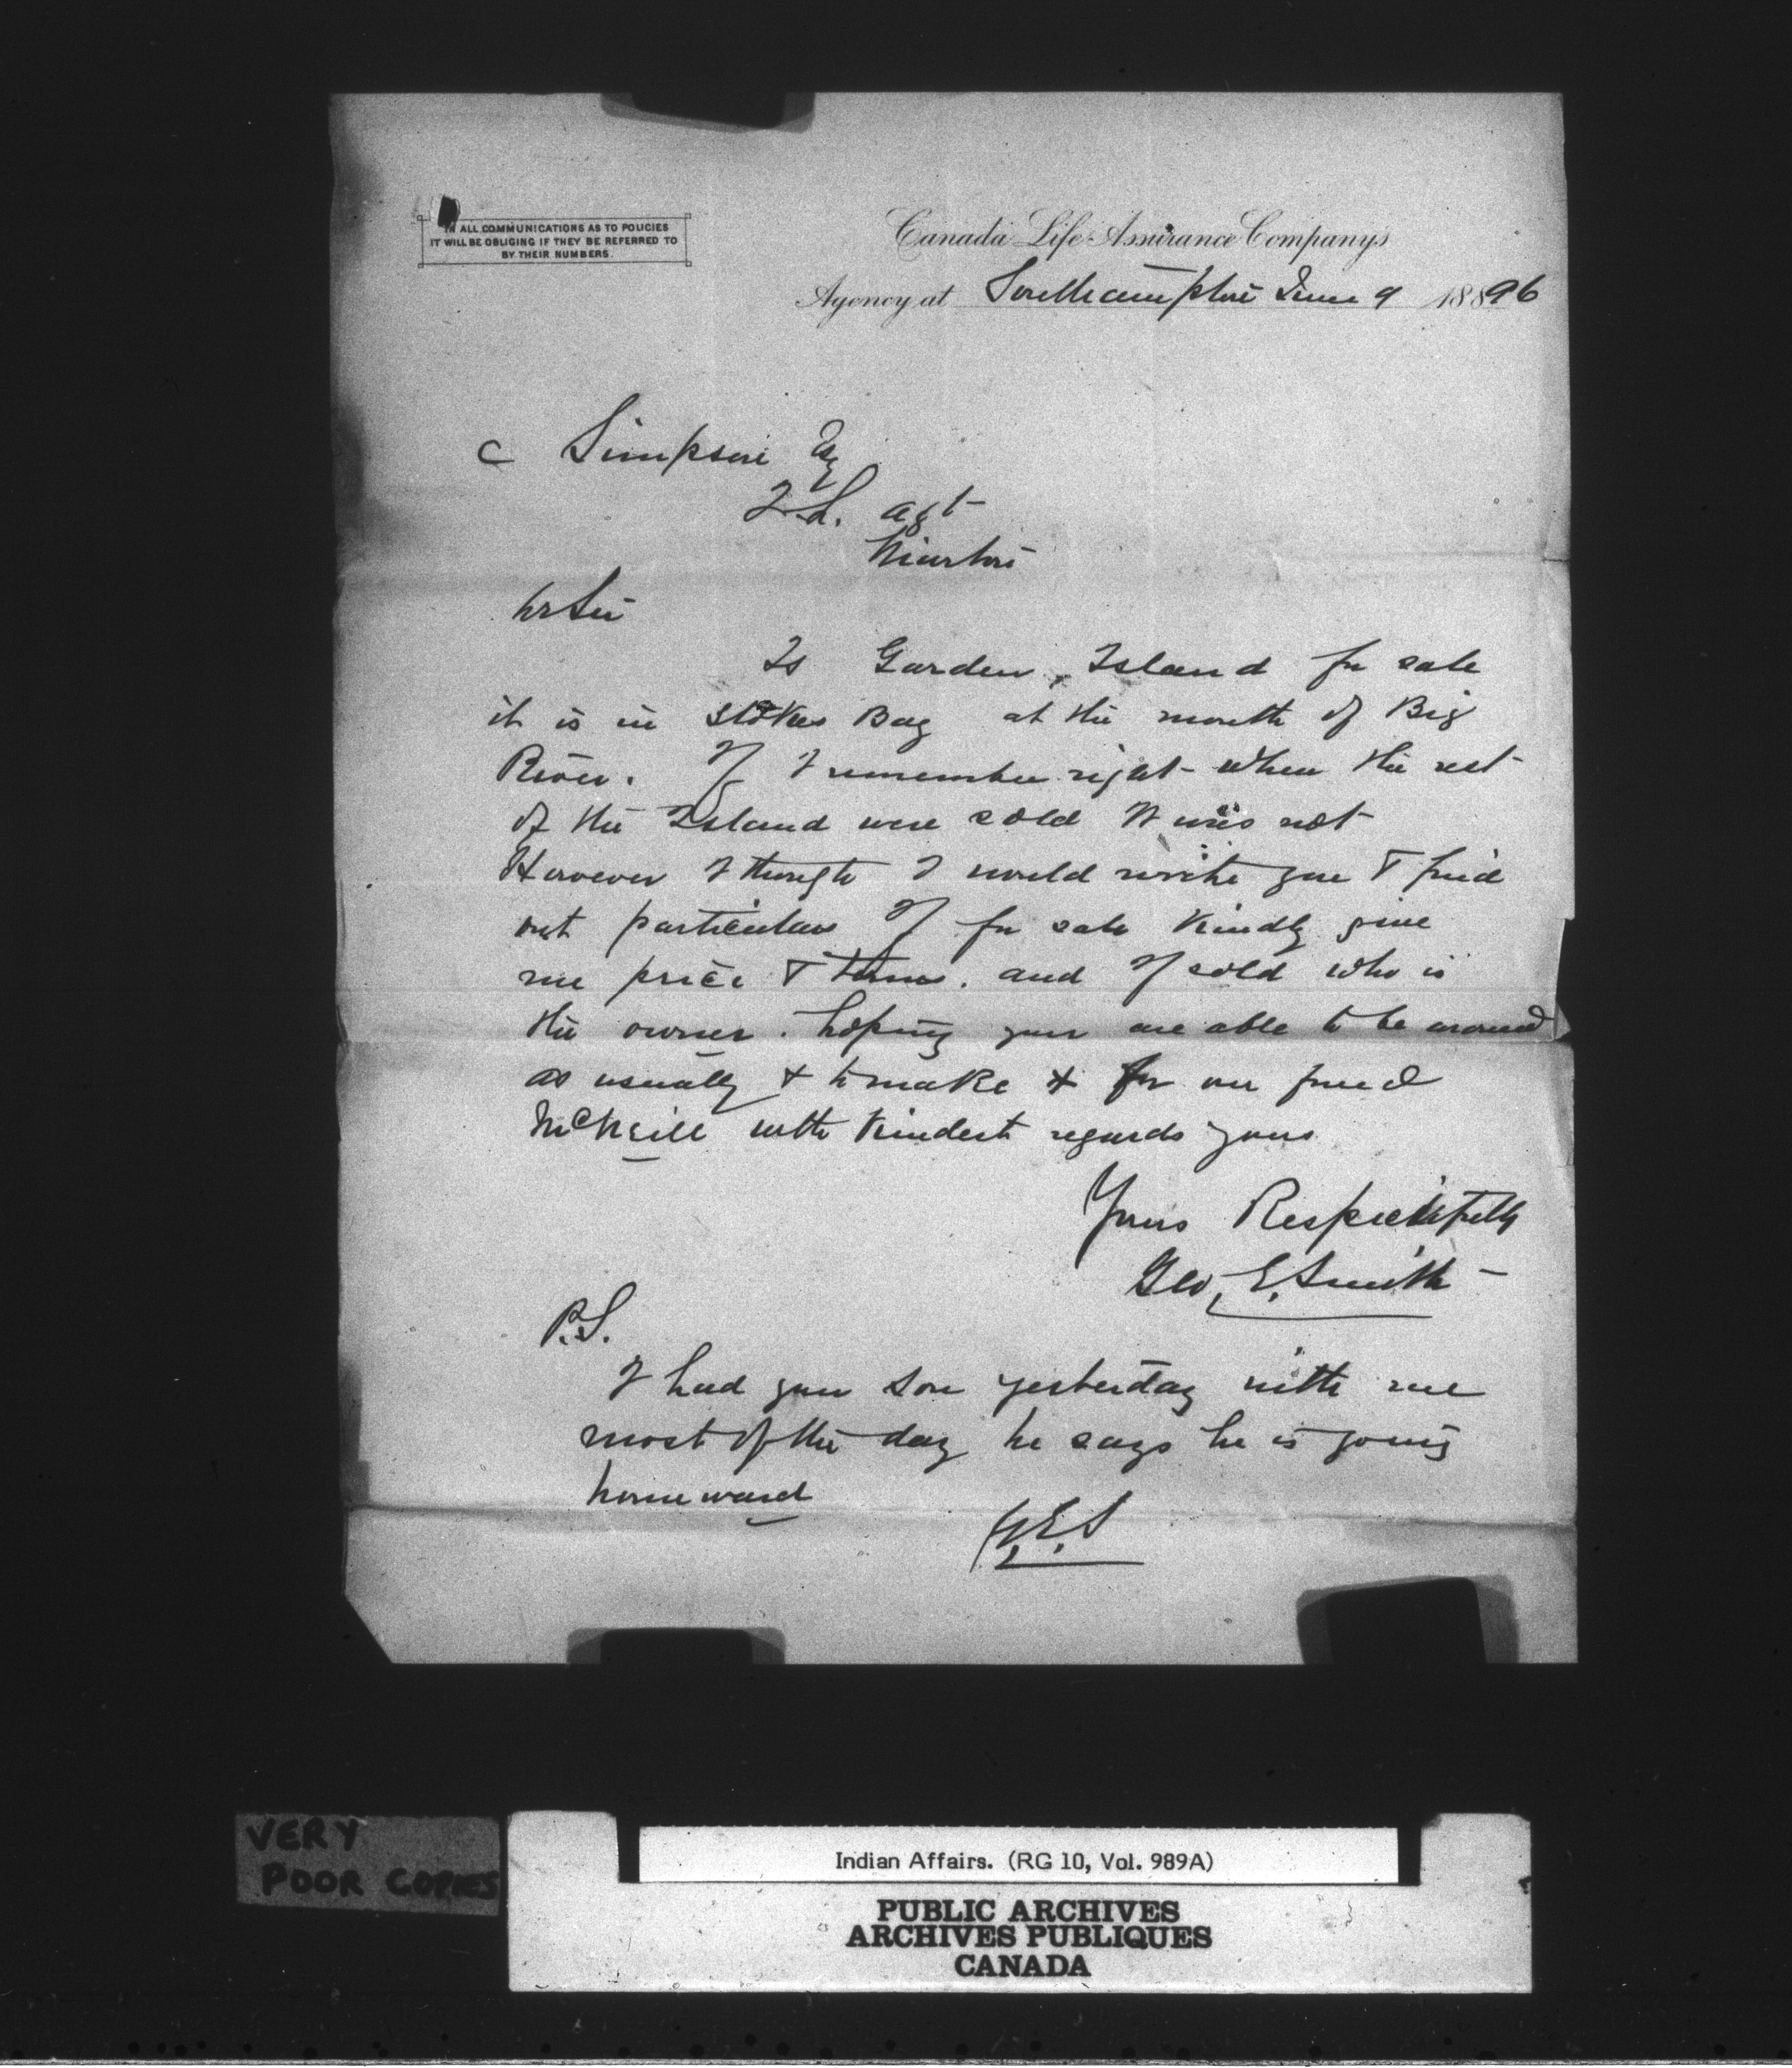 IN ALL COMMUNICATIONS AS TO POLICIES
IT WILL BE OBLIGING IF THEY BE REFERRED TO
BY THEIR NUMBERS.
Canada Life Assurance Company's
Agency at Southampton June 9 18896
C Simpson Esq
I.L. agt
Wiarton
Dr Sir
Is Garden Island for sale
it is in Stokes Bay at the mouth of Big
River. If I remember right when the rest
of the Island were sold it was not
However I though I would write you & find
out particulars If for sale Kindly give
me price & terms. and If sold who is
the owner. hoping you are able to be around
as usually & to make X for our friend
McNeill with Kindest regards yours
Yours Respectfully
Geo. E. Smith
P.S.
I had your son yesterday with me
most of the day he says he is going
home ward
G.E.S
VERY
POOR COPIES
Indian Affairs. (RG 10, Vol. 989A)
PUBLIC ARCHIVES
ARCHIVES PUBLIQUES
CANADA